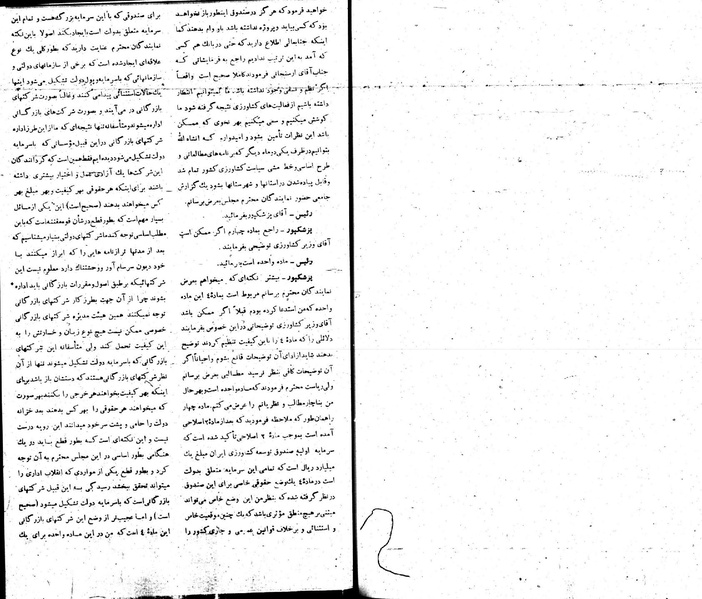 خواهید فرمود که هر گز در صندوق اینطور باز نخواهد
بود که کسی بیاید و پروژه نداشته باشد باو وام بدهند کما
اینکه جنابعالی اطلاع دارید که حتی در بانك هم کسی
که آمد به این ترتیب ندادیم راجع به فرمایشاتی که
جناب آقای ارسنجانی فرمودند کاملا صحیح است واقعاً
اگر نظم و نسقی وجود نداشته باشد ما نمیتوانیم انتظار
داشته باشیم از فعالیت‌های کشاورزی نتیجه گرفته شود ما
کوشش میکنیم و سعی میکنیم بهر نحوی که ممکن
باشد این نظرات تأمین بشود و امیدوارم که انشاءالله
بتوانیم در ظرف یکی دو ماه دیگر که برنامه‌های مطالعاتی و
طرح اساسی و خط مشی سیاست کشاورزی کشور تمام شد
و قابل پیاده شدن در استانها و شهرستانها بشود یك گزارش
جامعی حضور نمایندگان محترم مجلس بعرض برسانم.
رئیس - آقای پزشکپور بفرمائید.
پزشکپور - راجع بماده چهارم اگر ممکن است
آقای وزیر کشاورزی توضیحی بفرمایند.
رئیس - ماده واحده است بفرمائید.
پزشکپور - بیشتر نکته‌ای که میخواهم بعرض
نمایندگان محترم برسانم مربوط است بماده ٤ این ماده
واحده که من استدعا کرده بودم قبلا اگر ممکن باشد
آقای وزیر کشاورزی توضیحاتی در این خصوص بفرمایند
دلائلی را که ماده ٤ را باین کیفیت تنظیم کردند توضیح
بدهند شاید از ادای آن توضیحات قانع بشوم و احیاناً اگر
آن توضیحات کافی بنظر نرسید مطالبی بعرض برسانم
ولی ریاست محترم فرمودند که ماده واحده است و بهر حال
من بناچار مطالب و نظریاتم را عرض می‌کنم، ماده چهار
راهمان‌طور که ملاحظه فرمودید که بعد از ماده ۳ اصلاحی
آمده است بموجب مادهٔ ۳ اصلاحی تأکید شده است که
سرمایه اولیه صندوق توسعه کشاورزی ایران مبلغ یك
میلیارد ریال است که تمامی این سرمایه متعلق بدولت
است در مادهٔ ٤ یك وضع حقوقی خاصی برای این صندوق
در نظر گرفته شده که بنظر من این وضع خاص می‌تواند
مبتنی بر هیچ منطق مؤثری باشد که یك چنین موقعیت خاص
و استثنائی و برخلاف قوانین عمومی و جاری کشور را
برای صندوقی که با این سرمایه بزرگ هست و تمام این
سرمایه متعلق بدولت است، ایجاد بکند اصولا باین نکته
نمایندگان محترم عنایت دارید که بطور کلی یك نوع
علاقه‌ای ایجاد شده است که برخی از سازمانهای دولتی و
سازمانهائی که با سرمایه و پول دولت تشکیل می‌شود اینها
یك حالات استثنائی پیدا می‌کنند و غالباً صورت شرکتهای
بازرگانی در می‌آیند و صورت شرکت‌های بازرگانی
اداره میشوند و متأسفانه تنها نتیجه‌ای که ما از این طرز اداره
شرکتهای بازرگانی در این قبیل مؤسساتی که با سرمایه
دولت تشکیل می‌شود دیده‌ایم فقط همین است که گردانندگان
این شرکت‌ها یك آزادی عمل و اختیار بیشتری داشته
باشند برای اینکه هر حقوقی بهر کیفیت و بهر مبلغ بهر
کس میخواهند بدهند (صحیح است) این یکی از مسائل
بسیار مهم است که بطور قطع در شأن قوه مقننه است که باین
مطلب اساسی توجه کند ما شرکتهای دولتی بسیار میشناسیم که
بعد از مدتها ترازنامه هایی را که ابراز میکنند بــا
خود دیون سرسام آور و وحشتناك دارد معلوم نیست این
شرکتهائیکه بر طبق اصول و مقررات بازرگانی باید اداره
بشوند چرا از آن جهت بطرز کار شرکتهای بازرگانی
توجه نمیکنند همین هیئت مدیره شرکتهای بازرگانی
خصوصی ممکن نیست هیچ نوع زیان و خسارتش را به
این کیفیت تحمل کند ولی متأسفانه این شرکتهای
بازرگانی که با سرمایه دولت تشکیل میشوند تنها از آن
نظر شرکتهای بازرگانی هستند که دستشان باز باشد برای
اینکه بهر کیفیت بخواهند هر خرجی را بکنند بهر صورت
که میخواهند هر حقوقی را بهر کس بدهند بعد خزانه
دولت را حامی و پشت سر خود میدانند این رویه درست
نیست و این نکته‌ای است که بطور قطع بباید دو یك
هنگامی بطور اساسی در این مجلس محترم به آن توجه
کرد و بطور قطع یکی از مواردی که انقلاب اداری را
میتواند تحقق ببخشد رسیدگی به این قبیل شرکتهای
بازرگانی است که با سرمایه دولت تشکیل میشود (صحیح
است) و اما عجیب‌تر از وضع این شرکتهای بازرگانی
این ماده ٤ است که من در این ماده واحده برای یك